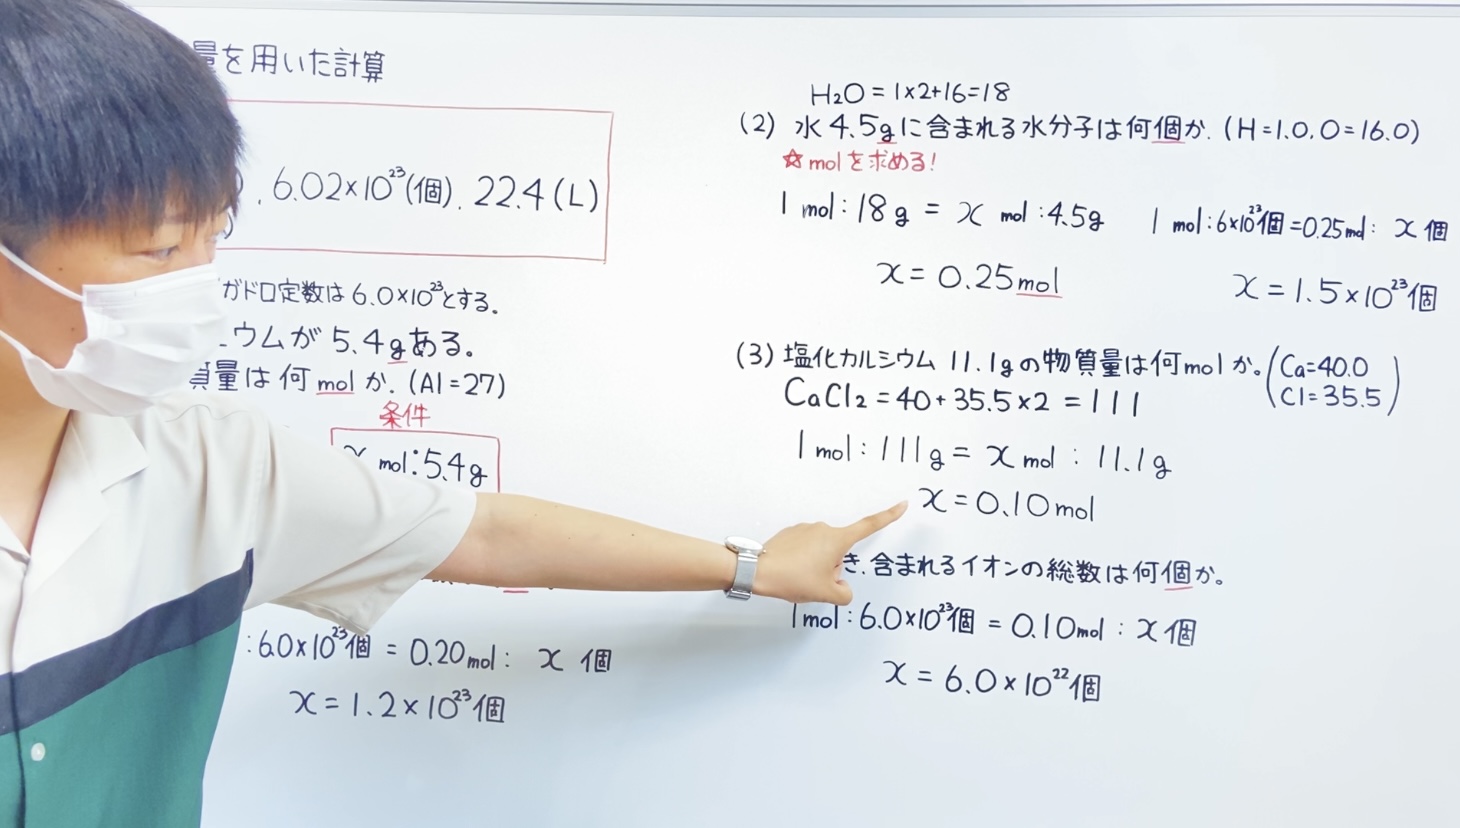 量を用いた計算
6.02×10²³(個). 22.4(L)
ガドロ定数は6.0×10²³とする。
ウムが5.4gある。
質量は何molか.(Al=27)
条件
x mol:5.4g
:6.0×10²³個 = 0.20mol: x 個
x=1.2×10²³個
H₂O=1×2+16=18
(2) 水4.5gに含まれる水分子は何個か.(H=1.0,O=16.0)
☆molを求める!
1 mol:18g = x mol:4.5g
1 mol:6×10²³個=0.25mol: x個
x=0.25mol
x=1.5×10²³個
(3)塩化カルシウム 11.1gの物質量は何molか。(Ca=40.0 Cl=35.5)
CaCl₂=40+35.5×2=111
1mol:111g= x mol:11.1g
x=0.10mol
き.含まれるイオンの総数は何個か。
1mol:6.0×10²³個 = 0.10mol: x個
x=6.0×10²²個